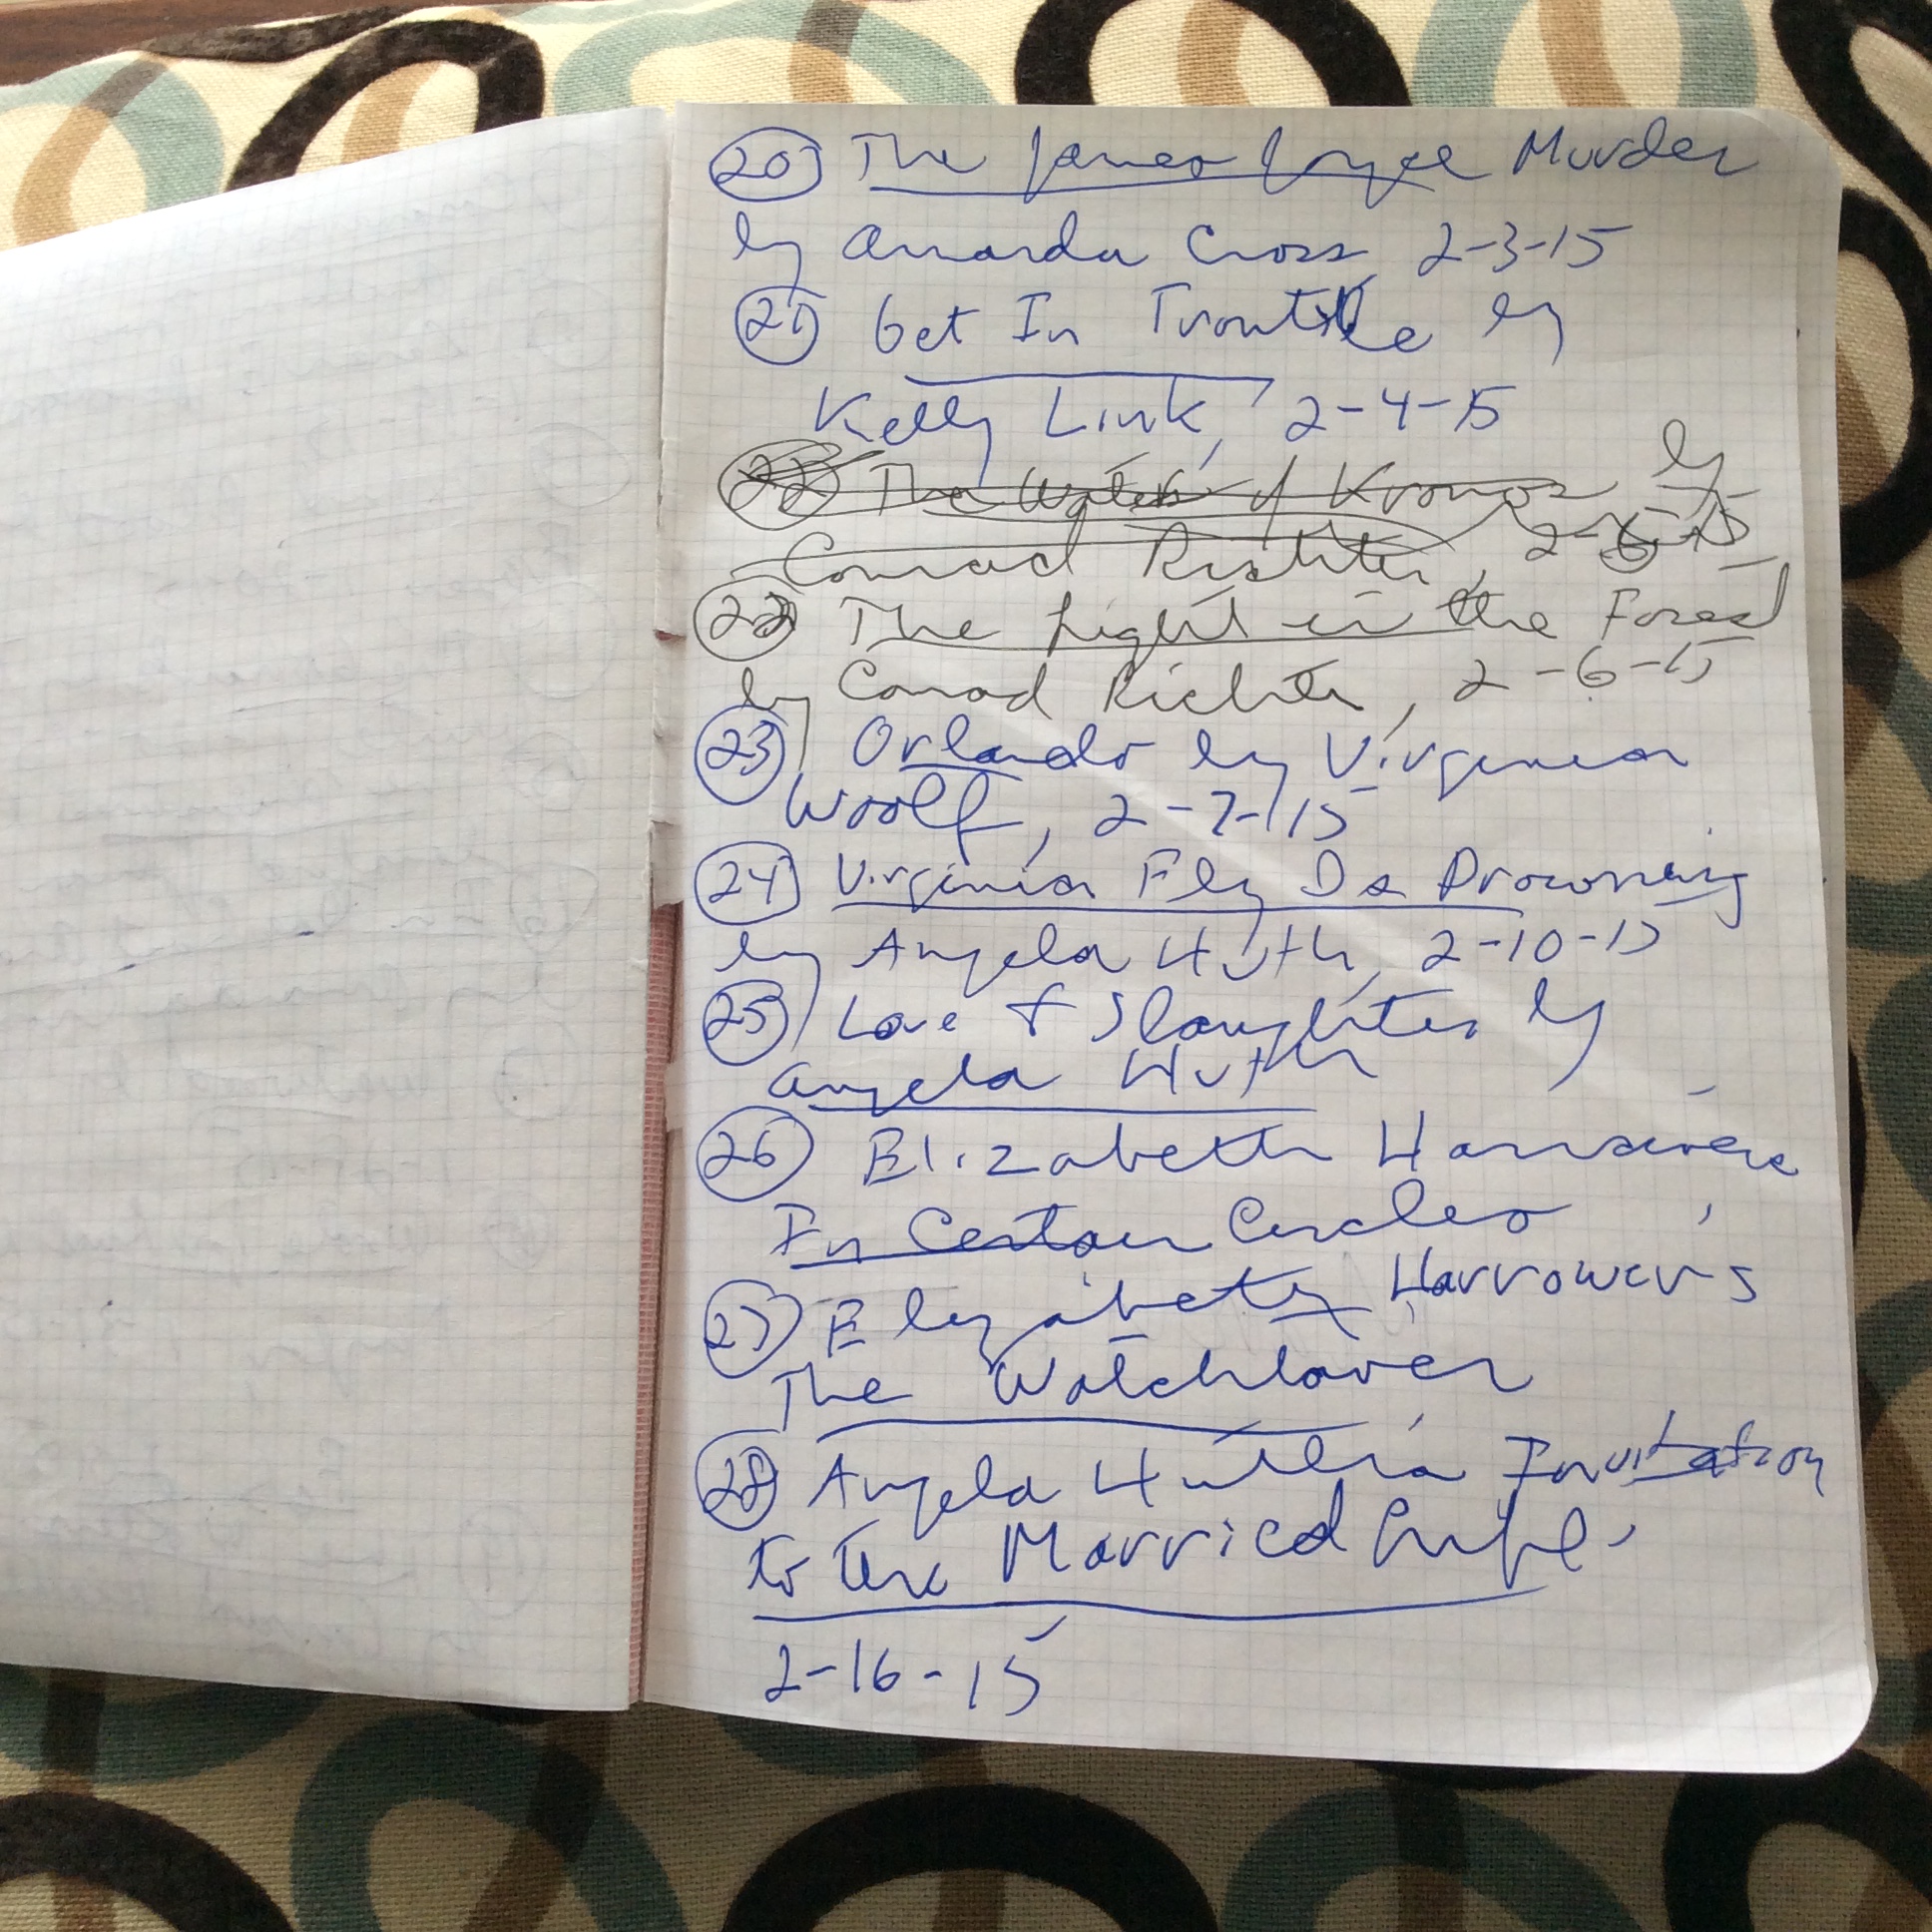 20 The James Joyce Murder
by Amanda Cross, 2-3-15
21 Get In Trouble by
Kelly Link, 2-4-15
22 The Waters of Kronos by
Conrad Richter, 2-6-15
22 The Light in the Forest
by Conrad Richter, 2-6-15
23 Orlando by Virginia
Woolf, 2-7-15
24 Virginia Fly Is Drowning
by Angela Huth, 2-10-15
25 Love & Slaughter by
Angela Huth
26 Elizabeth Harrower's
In Certain Circles
27 Elizabeth Harrower's
The Watchtower
28 Angela Huth's Invitation
to the Married Life,
2-16-15